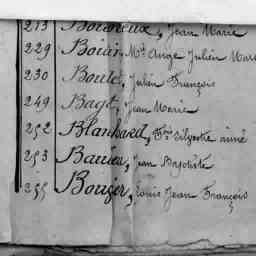 213 Bourreux, Jean Marie
229 Bouin, Mel Ange Julien Marie
230 Boulé, Julien François
249 Bagot, Jean Marie
252 Blanchard, Fois Silvestre aimé
253 Barieu, Jean Baptiste
255 Bouger, Louis Jean François